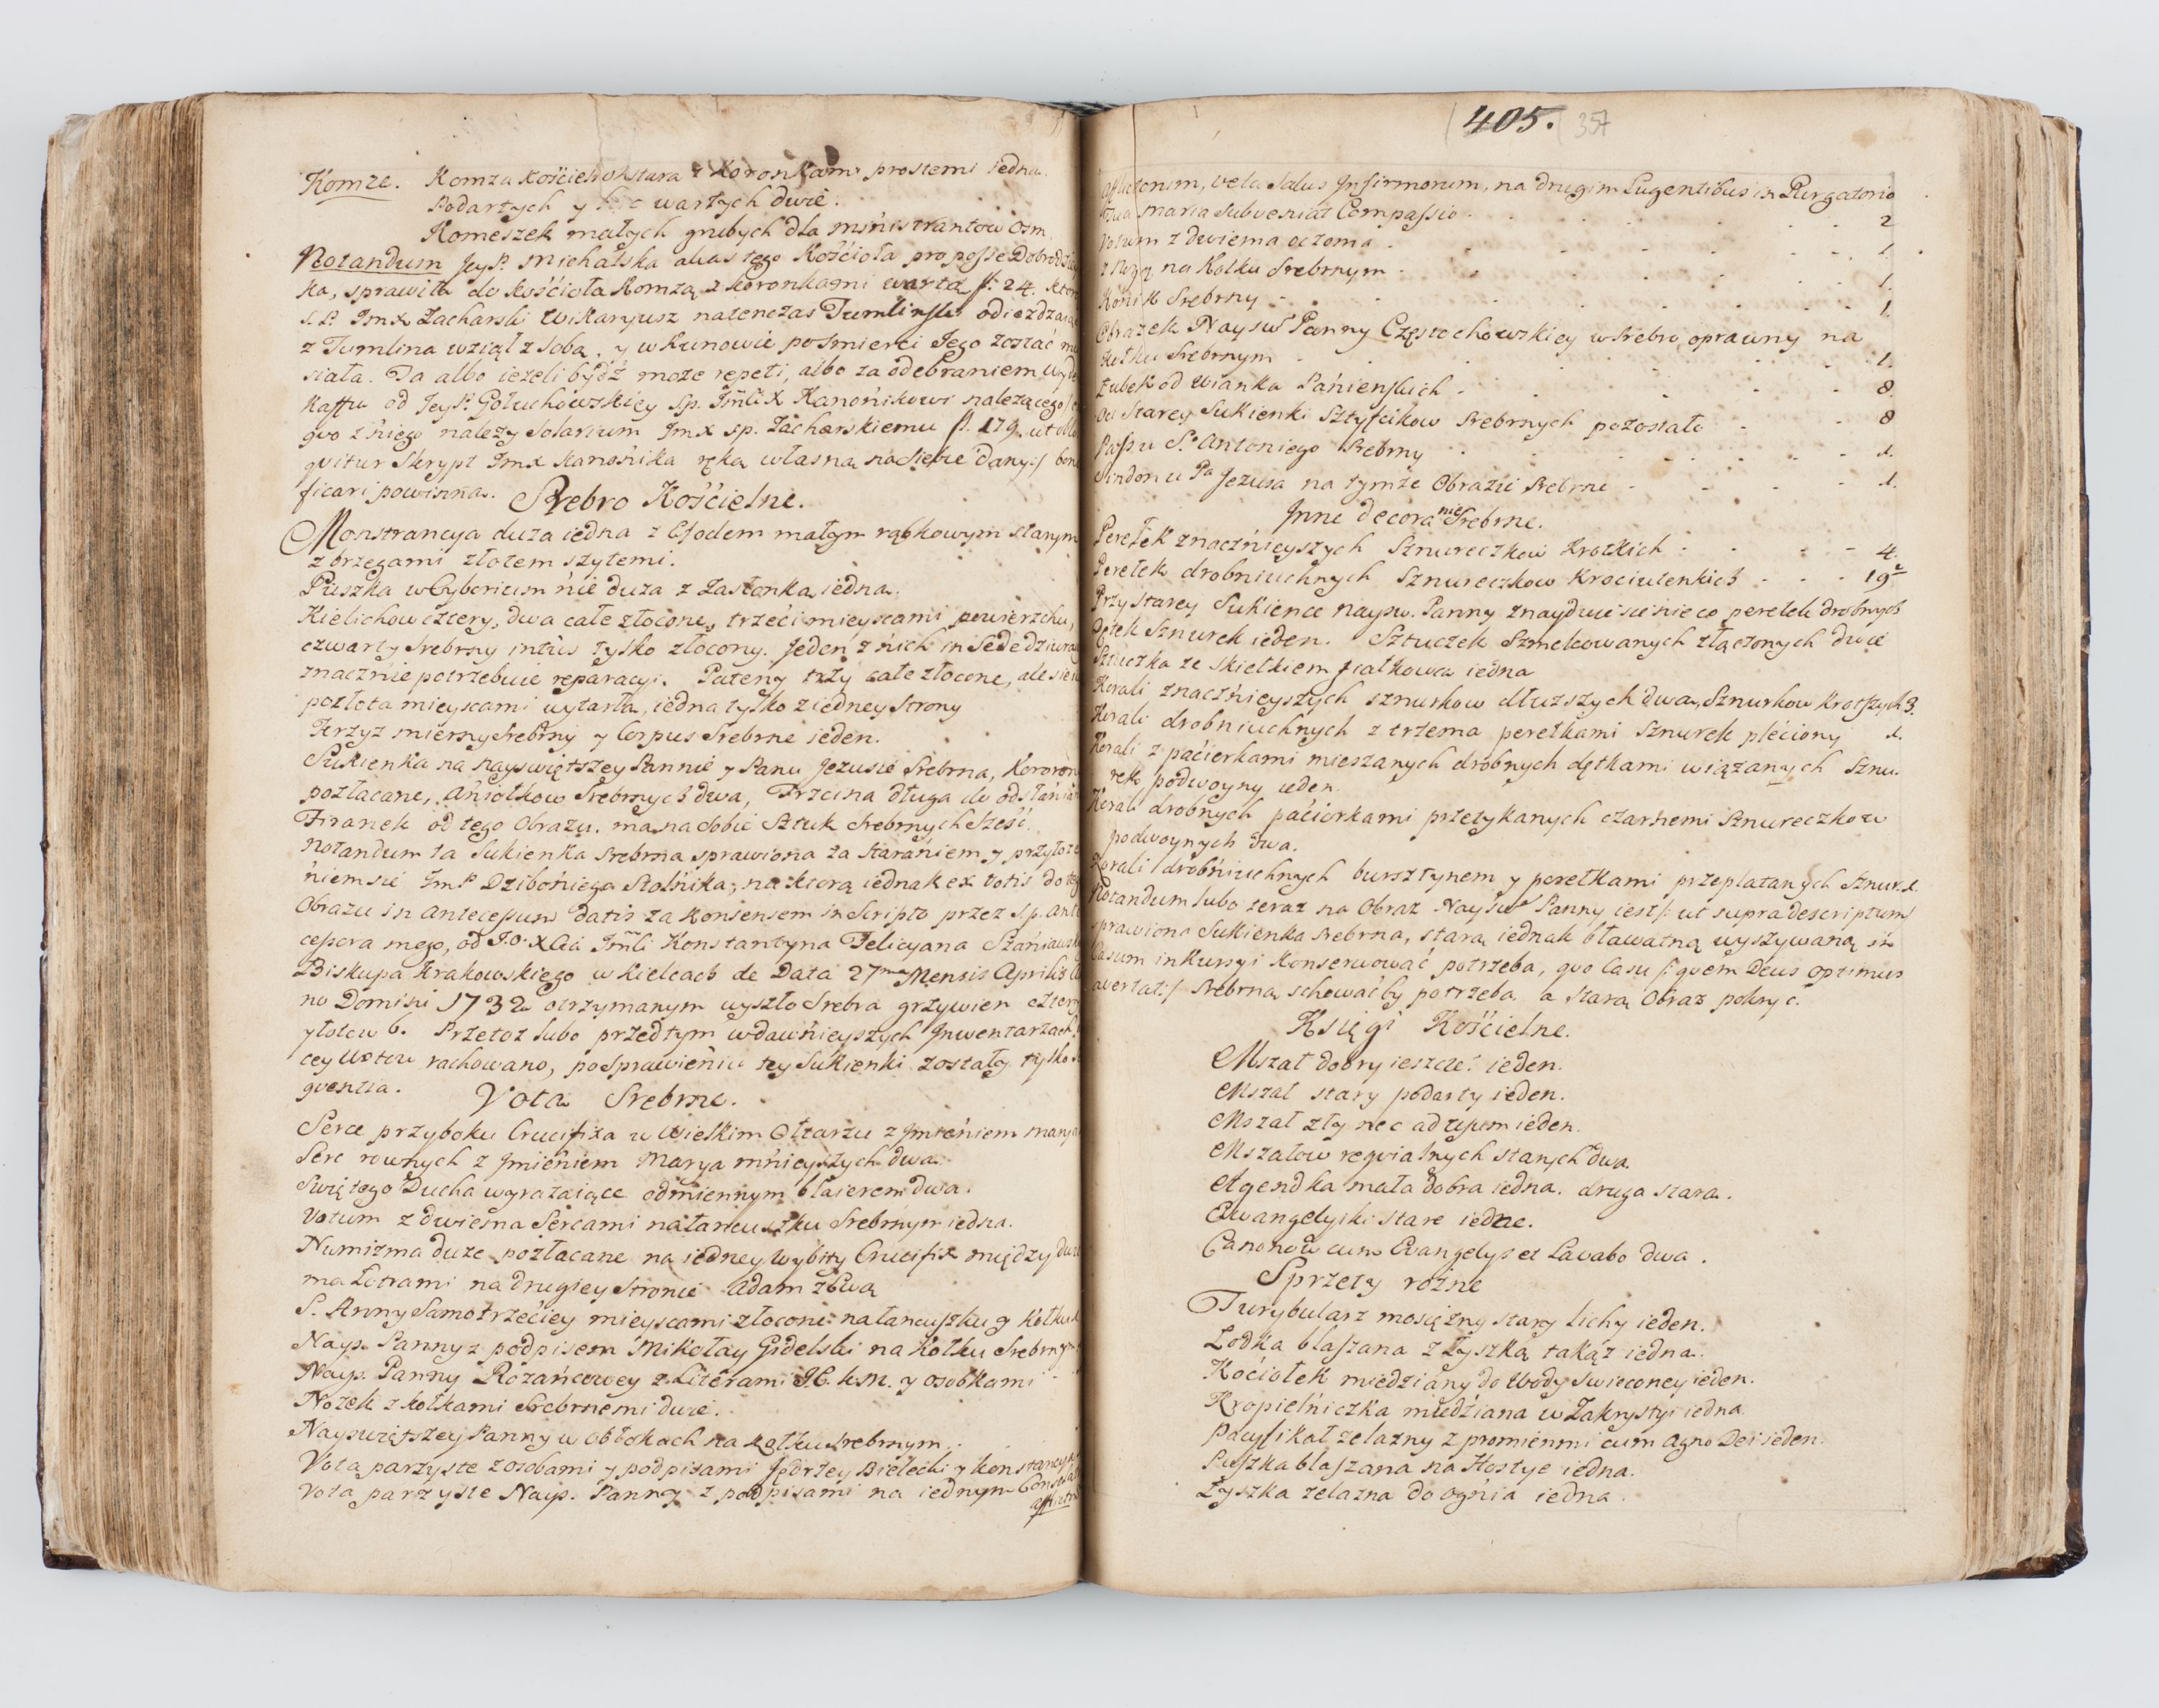 Komze. Komza Kościelna stara z Koronkami prostemi iedna.
Podartych y wartych dwie.
Komeszek małych grubych dla ministrantow osm
Notandum JeyP. Michalska alias tego Kościoła pro posse Dobrodziey
ka, sprawiła do kościoła Komzą z koronkami warta fl. 24. ktora
S.P. Jmx Zacharski Wikaryusz natenczas Tumliński odieżdzaiąc
z Tumlina wziął z sobą, y w Kunowie po śmierci Jego zostać mu
siała. Ta albo ieżeli bydź może repeti, albo za odebraniem
od JeyP. Gołuchowskiey Sp. Jmli X Kanonikowi należącego
qvo z niego należy Solarium Jmx sp. Zacharskiemu fl. 179. ut
qvitur Skrypt Jmx Kanonika ręką własną na siebie dany:/ bone
ficari powinna.
Srebro Kościelne.
Monstrancya duża iedna z Efodem małym rąbkowym starym
z brzegami złotem szytemi.
Puszka w Cyborium nie duża z Zasłonką iedna.
Kielichow cztery, dwa całe złocone, trzeci mieyscami powierzchu,
czwarty srebrny intus tylko złocony. Jeden z nich in Sede dziurawy
znacznie potrzebuie reparacyi. Pateny trzy całe złocone, ale się
pozłota mieyscami wytarła, iedna tylko z iedney strony
Krzyż mierny srebrny y Corpus Srebrne ieden.
Sukienka na Nayświętszey Pannie y Panu Jezusie Srebrna, Korony
pozłacane, Aniołkow Srebrnych dwa, Trzcina długa do odsłaniania
Firanek od tego Obrazu. ma na sobie sztuk srebrnych sześć.
Notandum ta Sukienka srebrna sprawiona za staraniem y przyłoże
niem sie JmP Dziboniego Stolnika, na ktorą iednak ex votis do tego
Obrazu in antecessum datis za Konsensem in Scripto przez s.p. Ante
cessora mego, od J.O. X Cia Jmli Konstantyna Felicyana Szaniawskiego
Biskupa Krakowskiego w Kielcach de Data 27ma Mensis Aprilis An
no Domini 1732 otrzymanym wyszło srebra grzywien cztery
y łotow 6. Przetoż lubo przedtym w dawnieyszych Jnwentarzach
cey Wotow rachowano, po Sprawieniu tey Sukienki zostały tylko se
quentia.
Vota Srebrne.
Serce przyboku Crucifixa w Wielkim Ołtarzu z Jmieniem Marya
Serc rownych z Jmieniem Marya mnieyszych dwa.
Swiętego Ducha wyrażaiące odmiennym blaierem dwa.
Votum z dwiema Sercami na łancuszku srebrnym iedna.
Numizma duże pozłacane na iedney wybity Crucifix między dwie
ma Łotrami na drugiey stronie Adam z Ewą
S. Anny Samotrzeciey mieyscami złocone na łancuszku y Kołku
Nayś. Panny z podpisem Mikołay Gidelski na kołku srebrnym
Nayś. Panny Rożańcowey z Literami J.C. K.M. y osobkami
Nożek z kołkami srebrnemi dwie.
Nayświętszey Panny w obłokach na kołku srebrnym.
Vota parzyste z osobami y podpisami Jędrzey Bielecki y Konstancya
Vota parzyste Nayś. Panny z podpisami na iednym Consolatrix
afflicto
405. 357
afflictorum, vela Salus Jnfirmorum, na drugim Lugentibus in Purgatorio
tua maria subveniat Compassio . 2
Votum z dwiema oczoma . 1.
z Nogą na Kołku srebrnym . 1.
Konik srebrny . 1
Obrazek Nayśw Panny Częstochowskiey w srebro oprawny na
Kołku Srebrnym . 1.
Ząbek od wianka Panienskich . 8.
Od starey Sukienki sztyfcikow srebrnych pozostało . 8
Passu S. Antoniego srebrny . 1.
Sindonu Pa Jezusa na tymże Obrazie srebrne . 1.
Jnne decora nie Srebrne.
Perełek znacznieyszych Sznureczkow Krotkich . 4.
Perełek drobniuchnych Sznureczkow Krociutenkich . 19
Przy starey Sukience Nayśw. Panny znayduie sie nieco perełek drobnych
Dętek Sznurek ieden. Sztuczek Szmelcowanych złączonych dwie
Sztuczka ze skiełkiem fiałkowa iedna
Korali znacznieyszych sznurkow dłuższych dwa, Sznurkow krotszych 3.
Korali drobniuchnych z trzema perełkami Sznurek pleciony 1.
Korali z paciorkami mieszanych drobnych dętkami wiązanych Sznu-
rek podwoyny ieden.
Korali drobnych paciorkami przetykanych czarnemi Sznureczkow
podwoynych dwa.
Korali drobniuchnych bursztynem y perełkami przeplatanych Sznur. 1.
Notandum lubo teraz na Obraz Nayśw Panny iest /: ut supra descriptum/
sprawiona Sukienka srebrna, starą iednak bławatną wyszywaną in
Casum inkursyi konserwować potrzeba, qvo Casu /: qvem Deus Optimus
avertat:/ srebrną schowaćby potrzeba, a starą Obraz pokryć.
Księgi Kościelne.
Mszał dobry ieszcze ieden.
Mszał stary podarty ieden.
Mszał zły nec ad usum ieden.
Mszałow reqvialnych starych dwa
Agendka mała dobra iedna. druga stara.
Ewangelyiki stare iedne.
Canonow cum Evangelys et Lavabo dwa.
Sprzęty rożne
Turybularz mosiężny stary lichy ieden.
Łodka blaszana z Łyszką takąż iedna.
Kociołek miedziany do Wody Swieconey ieden.
Kropielniczka miedziana w Zakrystyi iedna.
Pacyfikał żelazny z promienmi cum Agno Dei ieden.
Puszka blaszana na Hostye iedna.
Łyszka żelazna do ognia iedna.